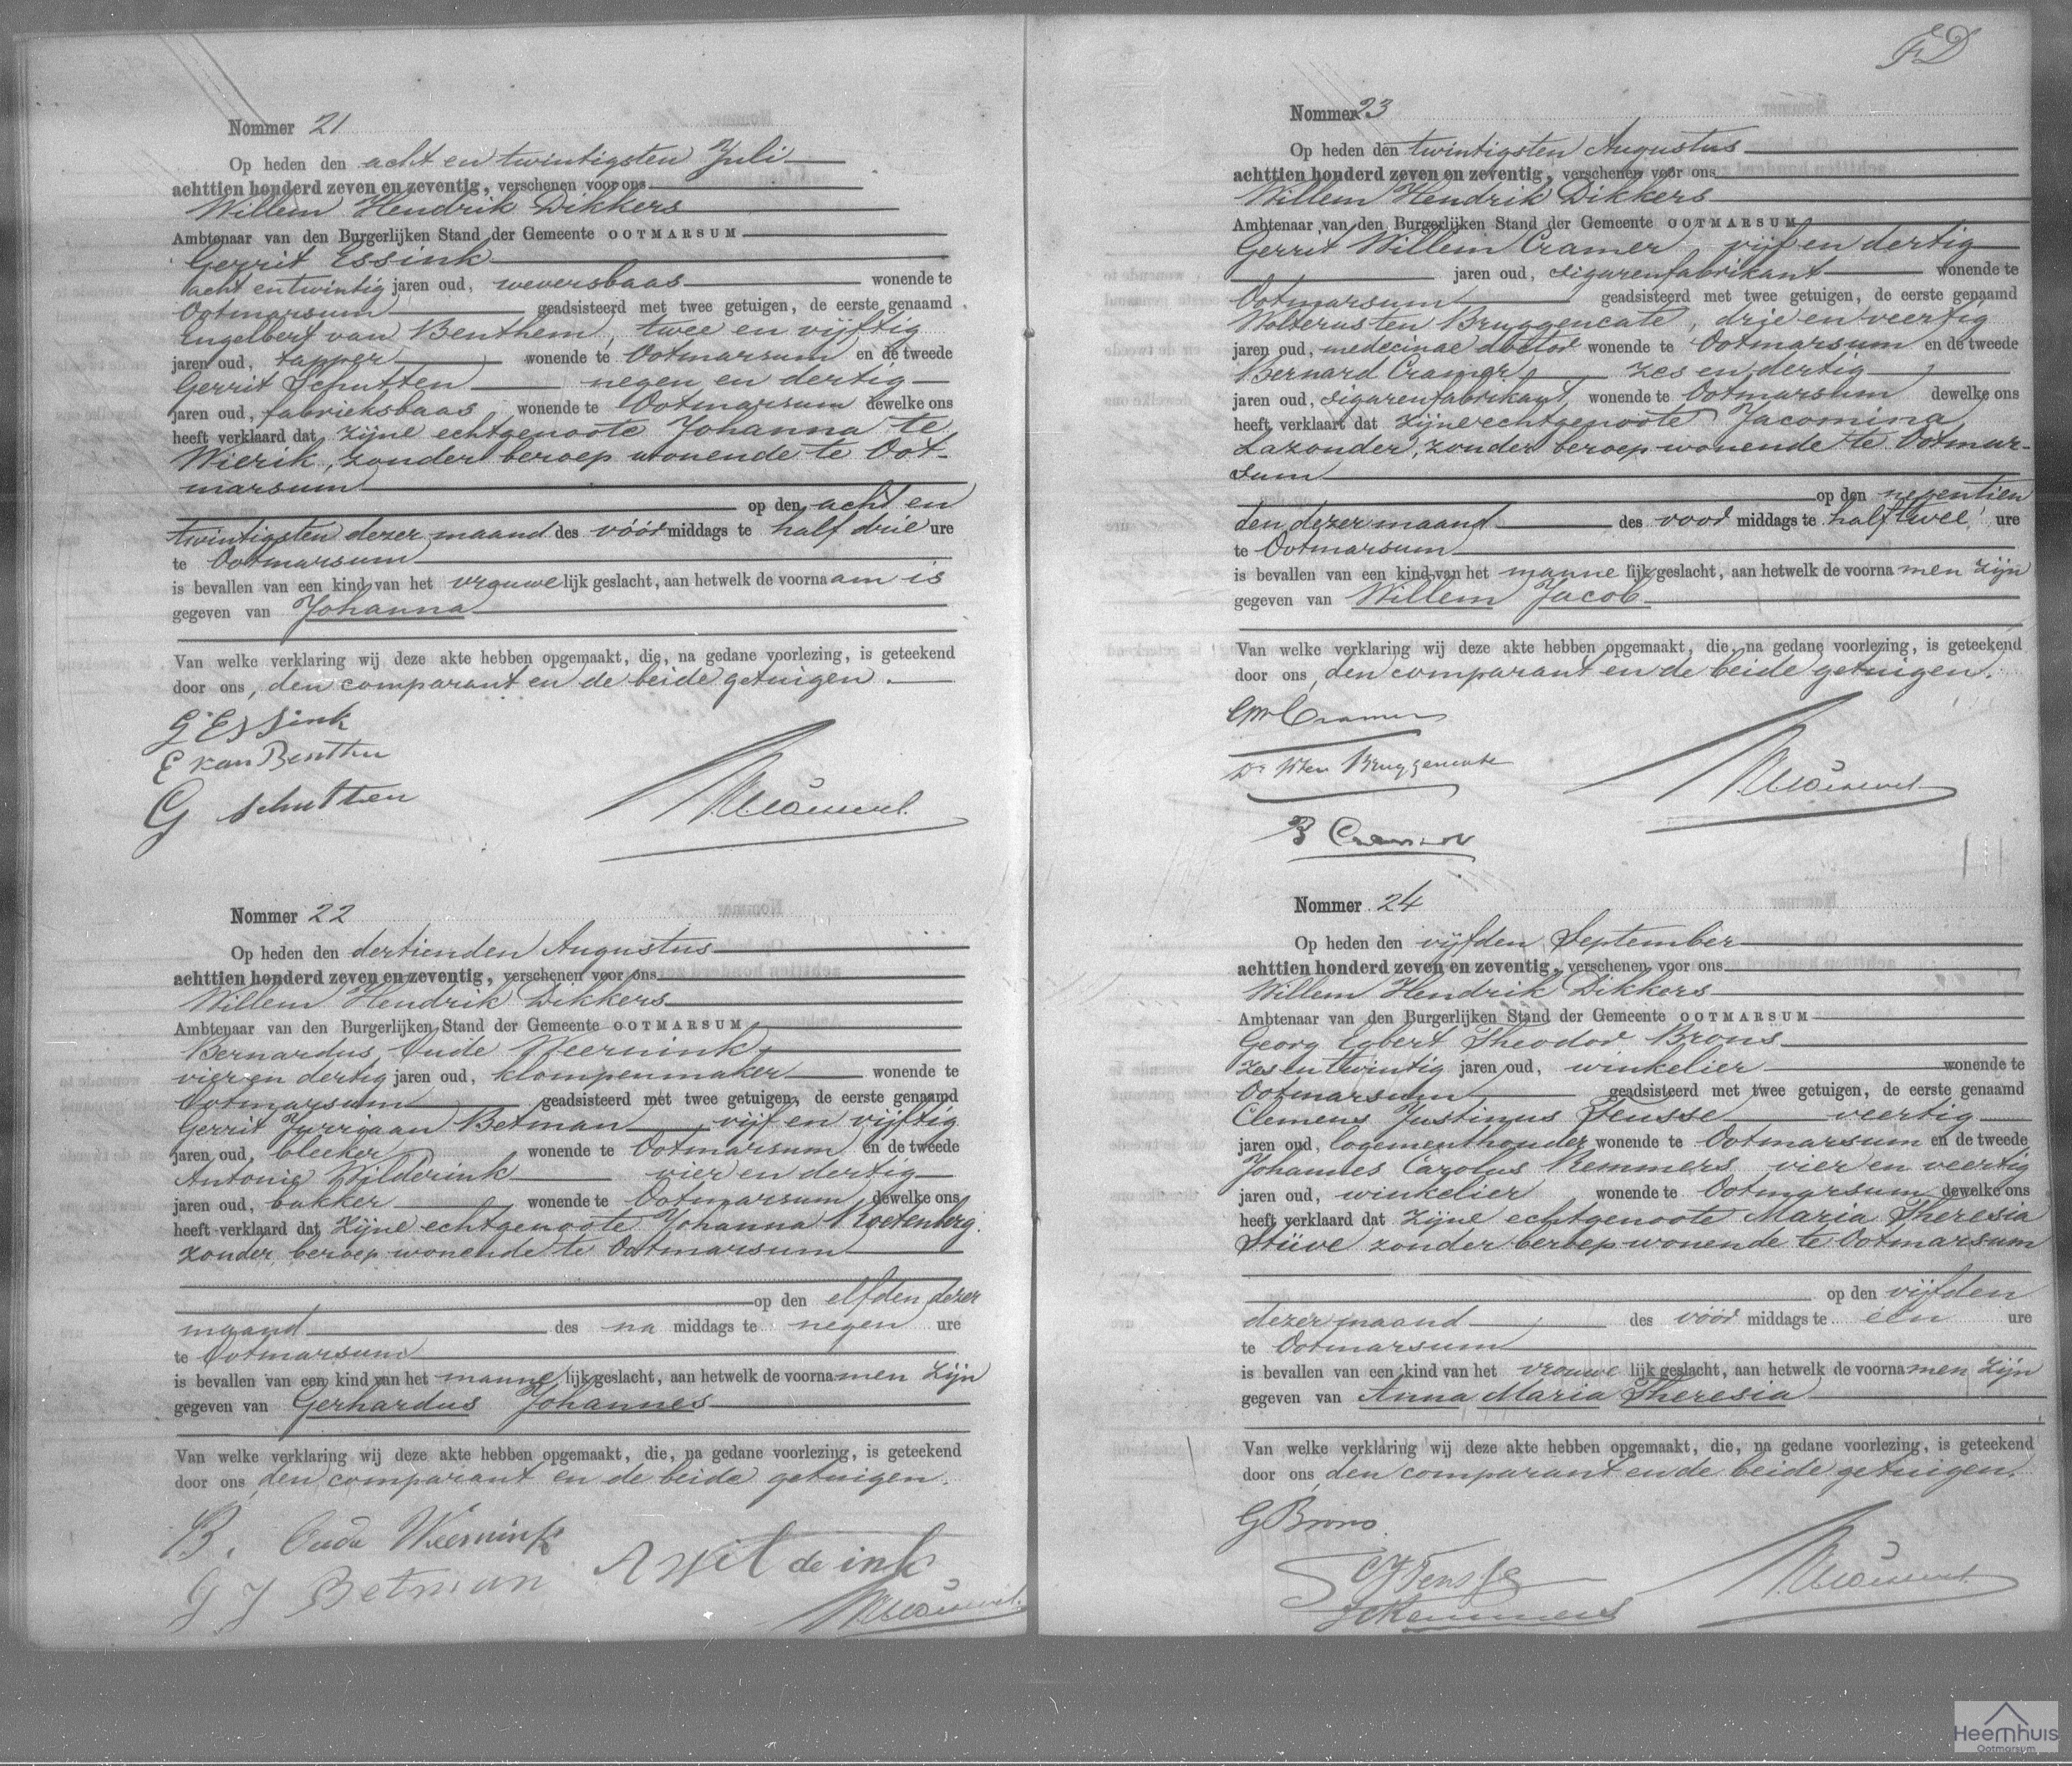 Nommer 21
Op heden den acht en twintigsten Juli
achttien honderd zeven en zeventig, verschenen voor ons
Willem Hendrik Dikkers
Ambtenaar van den Burgerlijken Stand der Gemeente OOTMARSUM
Gerrit Essink
acht en twintig jaren oud, weversbaas wonende te
Ootmarsum geadsisteerd met twee getuigen, de eerste genaamd
Engelbert van Benthem, twee en vijftig
jaren oud, tapper wonende te Ootmarsum en de tweede
Gerrit Schutten negen en dertig
jaren oud, fabrieksbaas wonende te Ootmarsum dewelke ons
heeft verklaard dat zijne echtgenoote Johanna te
Wierik, zonder beroep wonende te Oot-
marsum
op den acht en
twintigsten dezer maand des vóór middags te half drie ure
te Ootmarsum
is bevallen van een kind van het vrouwelijk geslacht, aan hetwelk de voornaam is
gegeven van Johanna
Van welke verklaring wij deze akte hebben opgemaakt, die, na gedane voorlezing, is geteekend
door ons, den comparant en de beide getuigen.
G Essink
E van Benthem
G Schutten
Nommer 22
Op heden den dertienden Augustus
achttien honderd zeven en zeventig, verschenen voor ons
Willem Hendrik Dikkers
Ambtenaar van den Burgerlijken Stand der Gemeente OOTMARSUM
Bernardus Oude Weernink
vier en dertig jaren oud, klompenmaker wonende te
Ootmarsum geadsisteerd met twee getuigen, de eerste genaamd
Gerrit Jurriaan Betman vijf en vijftig
jaren oud, bleeker wonende te Ootmarsum en de tweede
Antonie Wilderink vier en dertig
jaren oud, bakker wonende te Ootmarsum dewelke ons
heeft verklaard dat zijne echtgenoote Johanna Roetenberg.
zonder beroep wonende te Ootmarsum
op den elfden dezer
maand des na middags te negen ure
te Ootmarsum
is bevallen van een kind van het mannelijk geslacht, aan hetwelk de voornamen zijn
gegeven van Gerhardus Johannes
Van welke verklaring wij deze akte hebben opgemaakt, die, na gedane voorlezing, is geteekend
door ons, den comparant en de beide getuigen.
B. Oude Weernink
A Wilderink
G J Betman
Nommer 23
Op heden den twintigsten Augustus
achttien honderd zeven en zeventig, verschenen voor ons
Willem Hendrik Dikkers
Ambtenaar van den Burgerlijken Stand der Gemeente OOTMARSUM
Gerrit Willem Cramer vijf en dertig
jaren oud, sigarenfabrikant wonende te
Ootmarsum geadsisteerd met twee getuigen, de eerste genaamd
Wolterus ten Bruggencate, drie en veertig
jaren oud, medecinae doctor wonende te Ootmarsum en de tweede
Bernard Cramer zes en dertig
jaren oud, sigarenfabrikant, wonende te Ootmarsum dewelke ons
heeft verklaart dat zijne echtgenoote Jacomina
Lazonder, zonder beroep wonende te Ootmar-
sum
op den negentien
den dezer maand des voor middags te half twee ure
te Ootmarsum
is bevallen van een kind van het mannelijk geslacht, aan hetwelk de voornamen zijn
gegeven van Willem Jacob
Van welke verklaring wij deze akte hebben opgemaakt, die, na gedane voorlezing, is geteekend
door ons, den comparant en de beide getuigen.
GW Cramer
Dr W ten Bruggencate
B Cramer
Nommer 24
Op heden den vijfden September
achttien honderd zeven en zeventig, verschenen voor ons
Willem Hendrik Dikkers
Ambtenaar van den Burgerlijken Stand der Gemeente OOTMARSUM
Georg Egbert Theodor Brons
zes en twintig jaren oud, winkelier wonende te
Ootmarsum geadsisteerd met twee getuigen, de eerste genaamd
Clemens Justinus Fensse veertig
jaren oud, logementhouder wonende te Ootmarsum en de tweede
Johannes Carolus Remmers vier en veertig
jaren oud, winkelier wonende te Ootmarsum dewelke ons
heeft verklaard dat zijne echtgenoote Maria Theresia
Stüve zonder beroep wonende te Ootmarsum
op den vijfden
dezer maand des vóór middags te één ure
te Ootmarsum
is bevallen van een kind van het vrouwelijk geslacht, aan hetwelk de voornamen zijn
gegeven van Anna Maria Theresia
Van welke verklaring wij deze akte hebben opgemaakt, die, na gedane voorlezing, is geteekend
door ons, den comparant en de beide getuigen.
G Brons
CJ Fensse
JC Remmers
Heemhuis
Ootmarsum